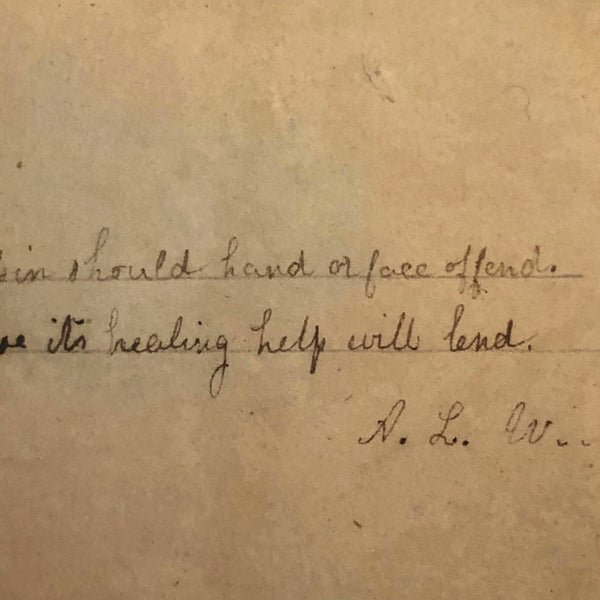 should hand or face offend.
its healing help will lend.
A. L. W..